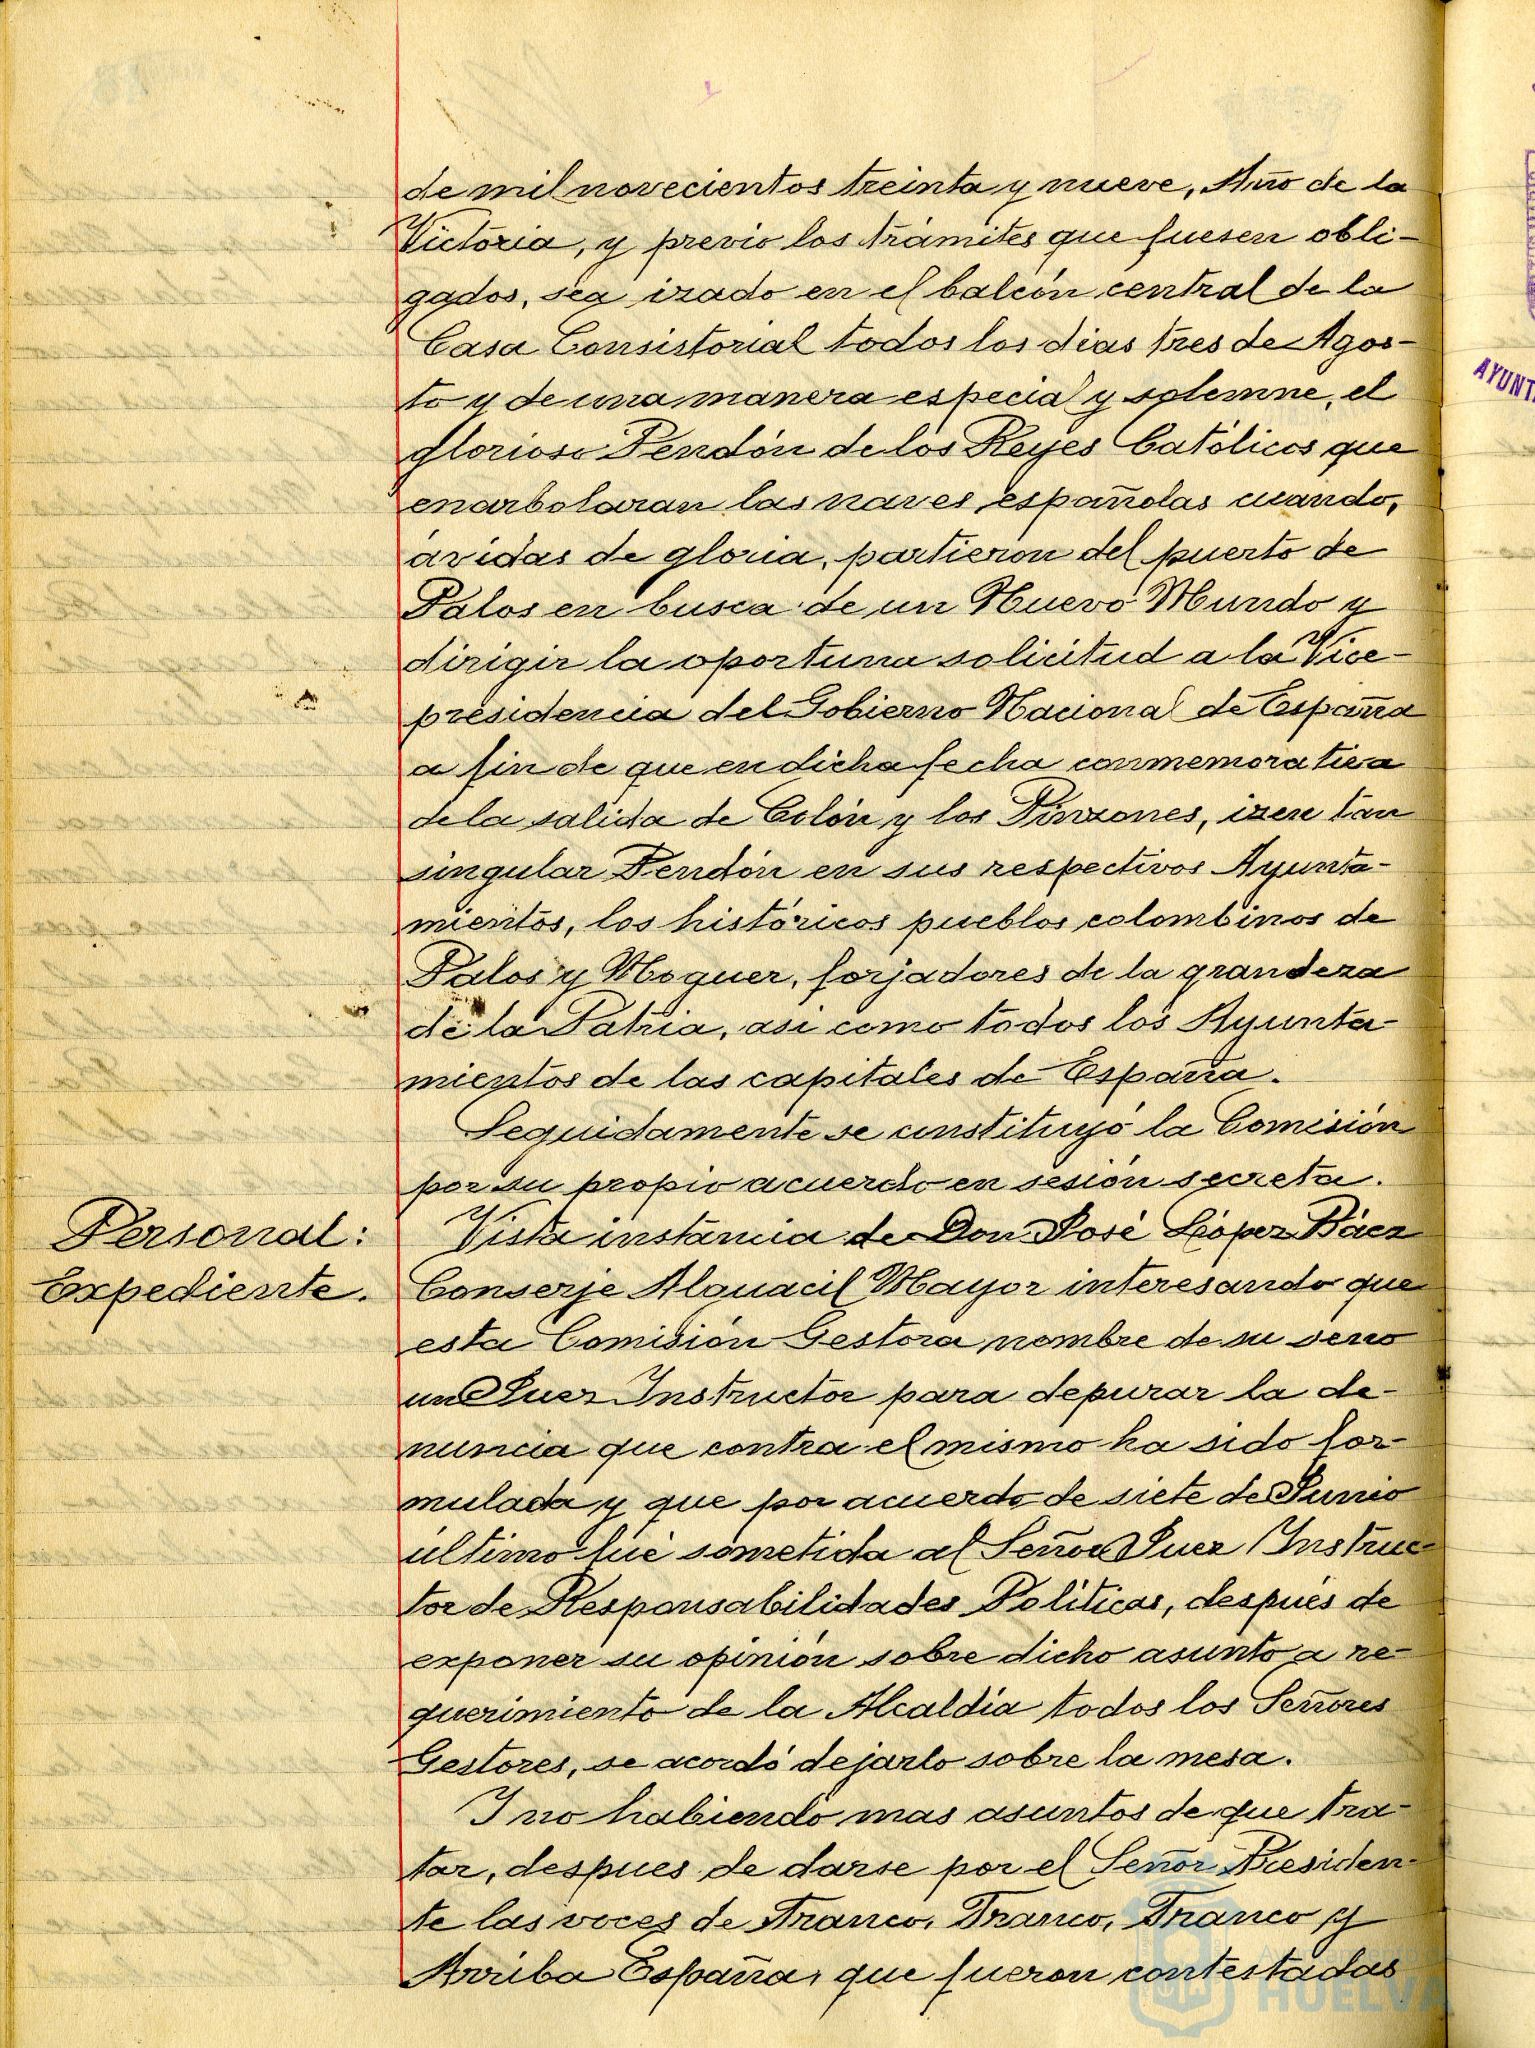 de mil novecientos treinta y nueve, Año de la
Victoria, y previo los trámites que fuesen obli-
gados, sea izado en el balcón central de la
Casa Consistorial todos los dias tres de Agos-
to y de una manera especial y solemne, el
glorioso Pendón de los Reyes Católicos que
enarbolaran las naves españolas cuando,
ávidas de gloria, partieron del puerto de
Palos en busca de un Nuevo Mundo y
dirigir la oportuna solicitud a la Vice-
presidencia del Gobierno Nacional de España
a fin de que en dicha fecha conmemorativa
de la salida de Colón y los Pinzones, izen tan
singular Pendón en sus respectivos Ayunta-
mientos, los históricos pueblos colombinos de
Palos y Moguer, forjadores de la grandeza
de la Patria, asi como todos los Ayunta-
mientos de las capitales de España.
Seguidamente se constituyó la Comisión
por su propio acuerdo en sesión secreta.
Personal:
Expediente.
Vista instancia de Don José López Báez
Conserje Alguacil Mayor interesando que
esta Comisión Gestora nombre de su seno
un Juez Instructor para depurar la de-
nuncia que contra el mismo ha sido for-
mulada y que por acuerdo de siete de Junio
último fué sometida al Señor Juez Instruc-
tor de Responsabilidades Políticas, después de
exponer su opinión sobre dicho asunto a re-
querimiento de la Alcaldía todos los Señores
Gestores, se acordó dejarlo sobre la mesa.
Y no habiendo mas asuntos de que tra-
tar, despues de darse por el Señor Presiden-
te las voces de Franco, Franco, Franco y
Arriba España, que fueron contestadas
AYUNT
HUELVA